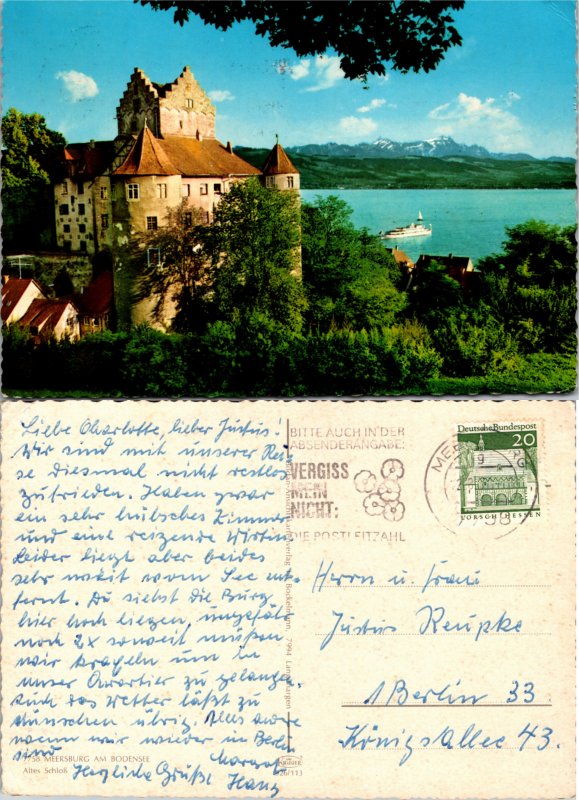 Liebe Charlotte, lieber Justus!
Wir sind mit unserer Rei-
se diesmal nicht restlos
zufrieden. Haben zwar
ein sehr hübsches Zimmer
und eine reizende Wirtin
leider liegt aber beides
sehr weit vom See ent-
fernt. Du siehst die Burg
hier hoch liegen, ungefähr
noch 2x soweit müßen
wir krageln um in
unser Quartier zu gelangen.
Auch das Wetter läßt zu
wünschen übrig. Alles andre
wenn wir wieder in Berlin
sind Margot
Herzliche Grüße Hans
7758 MEERSBURG AM BODENSEE
Altes Schloß
BITTE AUCH IN DER
ABSENDERANGABE:
VERGISS
MEIN
NICHT:
DIE POSTLEITZAHL
Deutsche Bundespost
20
LORSCH/HESSEN
7994 Langenargen
26/113
Herrn u. Frau
Justus Reupke
1 Berlin 33.
Königsallee 43.